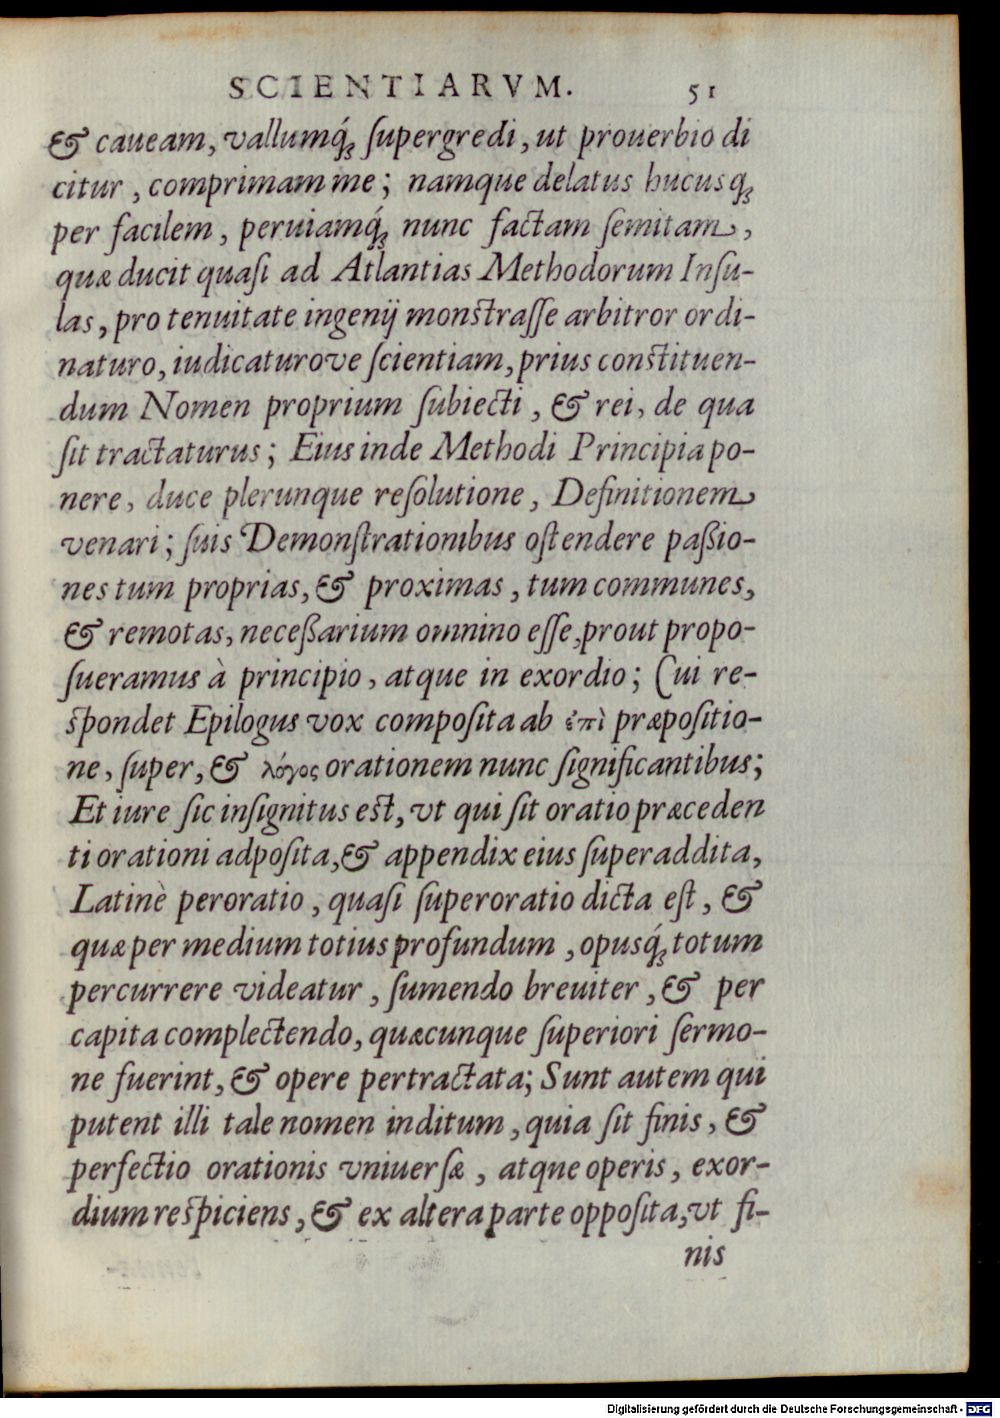 SCIENTIARVM. 51
& caueam, vallumq́; ſupergredi, ut prouerbio di
citur, comprimam me; namque delatus hucusq;
per facilem, peruiamq́; nunc factam ſemitam,
quæ ducit quaſi ad Atlantias Methodorum Inſu-
las, pro tenuitate ingenij monstraſſe arbitror ordi-
naturo, iudicaturove ſcientiam, prius constituen-
dum Nomen proprium ſubiecti, & rei, de qua
ſit tractaturus; Eius inde Methodi Principia po-
nere, duce plerunque reſolutione, Definitionem
venari; ſuis Demonſtrationibus oſtendere paßio-
nes tum proprias, & proximas, tum communes,
& remotas, neceßarium omnino eſſe, prout propo-
ſueramus à principio, atque in exordio; Cui re-
spondet Epilogus vox compoſita ab ἐπὶ præpoſitio-
ne, ſuper, & λόγος orationem nunc ſignificantibus;
Et iure ſic inſignitus est, vt qui ſit oratio præceden
ti orationi adpoſita, & appendix eius ſuperaddita,
Latinè peroratio, quaſi ſuperoratio dicta eſt, &
quæ per medium totius profundum, opusq́; totum
percurrere videatur, ſumendo breuiter, & per
capita complectendo, quæcunque ſuperiori ſermo-
ne fuerint, & opere pertractata; Sunt autem qui
putent illi tale nomen inditum, quia ſit finis, &
perfectio orationis vniuerſæ, atque operis, exor-
dium respiciens, & ex altera parte oppoſita, vt fi-
nis
Digitalisierung gefördert durch die Deutsche Forschungsgemeinschaft - DFG